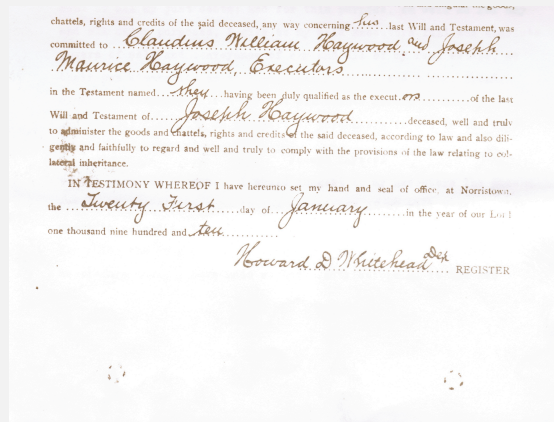 chattels, rights and credits of the said deceased, any way concerning his last Will and Testament, was
committed to Claudius William Haywood and Joseph
Maurice Haywood, Executors
in the Testament named they having been duly qualified as the executors of the last
Will and Testament of Joseph Haywood deceased, well and truly
to administer the goods and chattels, rights and credits of the said deceased, according to law and also dili-
gently and faithfully to regard and well and truly to comply with the provisions of the law relating to col-
lateral inheritance.
IN TESTIMONY WHEREOF I have hereunto set my hand and seal of office, at Norristown,
the Twenty First day of January in the year of our Lord
one thousand nine hundred and ten
Howard D Whitehead Dep REGISTER